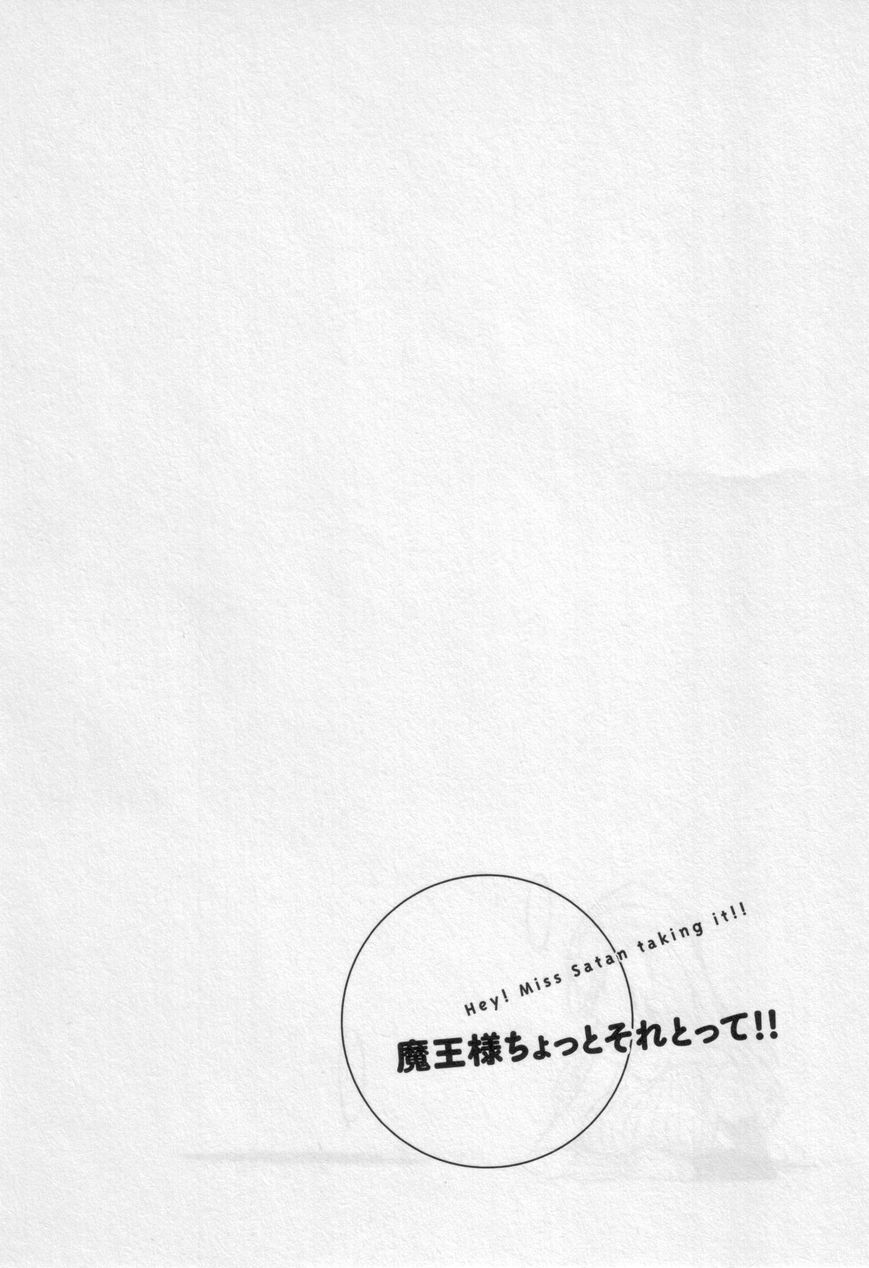 Hey! Miss Satan taking it!!
魔王様ちょっとそれとって!!